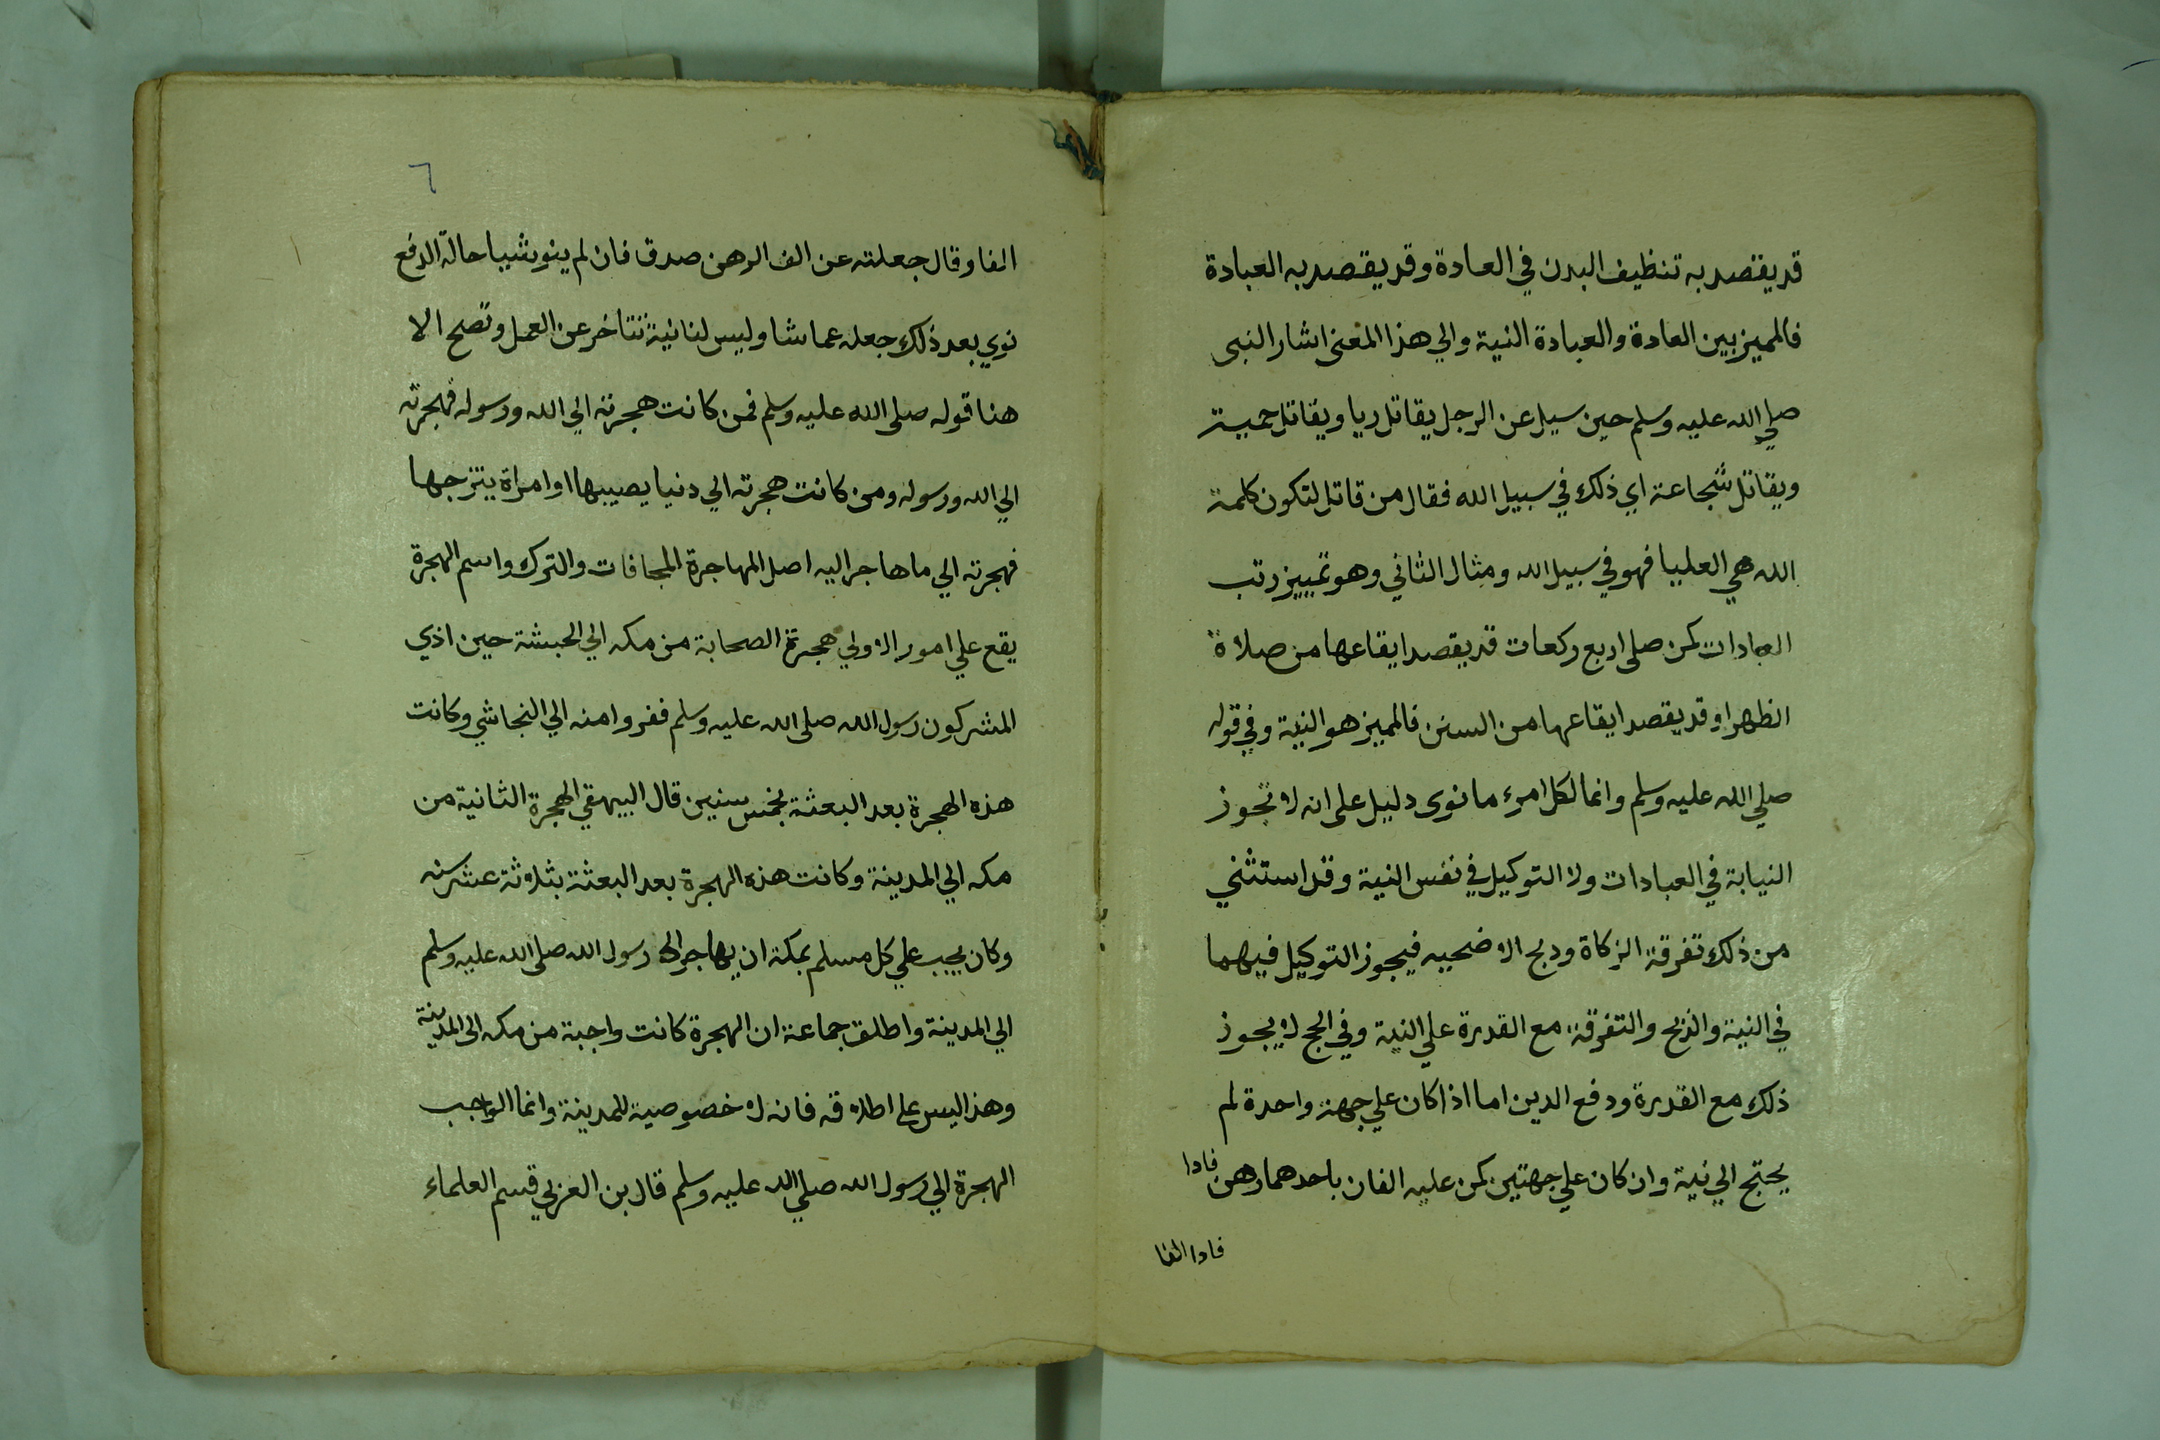 قد يقصد به تنظيف البدن في العادة وقد يقصد به العبادة
فالمميز بين العادة والعبادة النية والي هذا المعنى اشار النبى
صلي الله عليه وسلم حين سيل عن الرجل يقاتل ريا ويقاتل حمية
ويقاتل شجاعة اي ذلك في سبيل الله فقال من قاتل لتكون كلمة
الله هي العليا فهو في سبيل الله ومثال الثاني وهو تمييز رتب
العبادات كمن صلى اربع ركعات قد يقصد ايقاعها من صلاة
الظهر او قد يقصد ايقاعها من السنن فالمميز هو النية وفي قوله
صلي الله عليه وسلم وانما لكل امرء ما نوى دليل على انه لا تجوز
النيابة في العبادات ولا التوكيل في نفس النية وقد استثني
من ذلك تفرقة الزكاة ودبح الاضحيه فيجوز التوكيل فيهما
في النية والذبح والتفرقة مع القدرة علي النية وفي الحج لا يجوز
ذلك مع القدرة ودفع الدين اما اذا كان علي جهة واحدة لم
يحتج الي نية وان كان علي جهتين كمن عليه الفان باحدهما رهن فادا
فادا الفا
٦
الفا وقال جعلته عن الف الرهن صدق فان لم ينو شيا حالة الدفع
نوي بعد ذلك جعله عما شا وليس لنا نية تتاخر عن العمل وتصح الا
هنا قوله صلى الله عليه وسلم فمن كانت هجرته الي الله ورسوله فهجرته
الي الله ورسوله ومن كانت هجرته الي دنيا يصيبها او امراة يتزجها
فهجرته الي ما هاجر اليه اصل المهاجرة المجافات والترك واسم الهجرة
يقع علي امور الاولي هجرة الصحابة من مكه الي الحبشة حين اذي
المشركون رسول الله صلى الله عليه وسلم ففروا منه الي النجاشي وكانت
هذه الهجرة بعد البعثة بخمس سنين قال البيهقي الهجرة الثانية من
مكه الي المدينة وكانت هذه الهجرة بعد البعثة بثلاثة عشر سنه
وكان يجب علي كل مسلم بمكة ان يهاجر الى رسول الله صلى الله عليه وسلم
الي المدينة واطلق جماعة ان الهجرة كانت واجبة من مكه الى المدينة
وهذا ليس على اطلاقه فانه لا خصوصية للمدينة وانما الواجب
الهجرة الي رسول الله صلي الله عليه وسلم قال بن العربي قسم العلماء